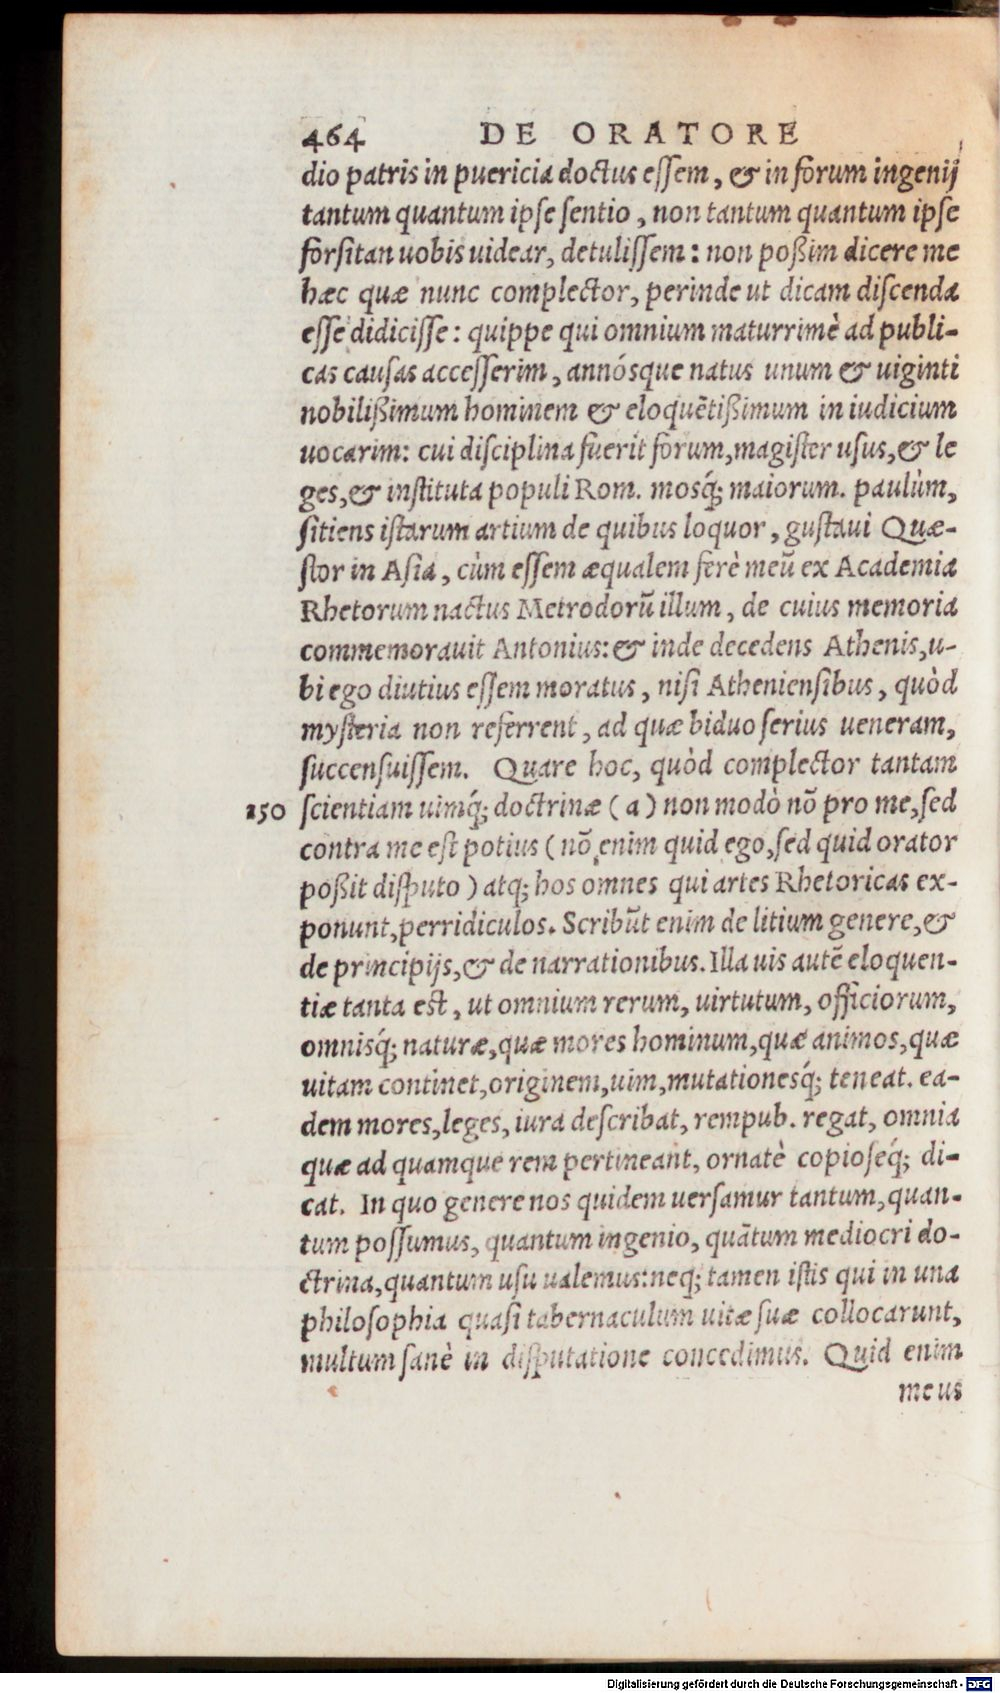 464 DE ORATORE
dio patris in puericia doctus essem, & in forum ingenij
tantum quantum ipse sentio, non tantum quantum ipse
forsitan uobis uidear, detulissem: non poßim dicere me
hæc quæ nunc complector, perinde ut dicam discenda
esse didicisse: quippe qui omnium maturrimè ad publi-
cas causas accesserim, annósque natus unum & uiginti
nobilißimum hominem & eloquẽtißimum in iudicium
uocarim: cui disciplina fuerit forum, magister usus, & le
ges, & instituta populi Rom. mosq́; maiorum. paulùm,
sitiens istarum artium de quibus loquor, gustaui Quæ-
stor in Asia, cùm essem æqualem ferè meũ ex Academia
Rhetorum nactus Metrodorũ illum, de cuius memoria
commemorauit Antonius: & inde decedens Athenis, u-
bi ego diutius essem moratus, nisi Atheniensibus, quòd
mysteria non referrent, ad quæ biduo serius ueneram,
succensuissem. Quare hoc, quòd complector tantam
150 scientiam uimq́; doctrinæ (a) non modò nõ pro me, sed
contra me est potius (nõ enim quid ego, sed quid orator
poßit disputo) atq; hos omnes qui artes Rhetoricas ex-
ponunt, perridiculos. Scribũt enim de litium genere, &
de principijs, & de narrationibus. Illa uis autẽ eloquen-
tiæ tanta est, ut omnium rerum, uirtutum, officiorum,
omnisq́; naturæ, quæ mores hominum, quæ animos, quæ
uitam continet, originem, uim, mutationesq́; teneat. ea-
dem mores, leges, iura describat, rempub. regat, omnia
quæ ad quamque rem pertineant, ornatè copioseq́; di-
cat. In quo genere nos quidem uersamur tantum, quan-
tum possumus, quantum ingenio, quãtum mediocri do-
ctrina, quantum usu ualemus: neq; tamen istis qui in una
philosophia quasi tabernaculum uitæ suæ collocarunt,
multum sanè in disputatione concedimus. Quid enim
meus
Digitalisierung gefördert durch die Deutsche Forschungsgemeinschaft - DFG